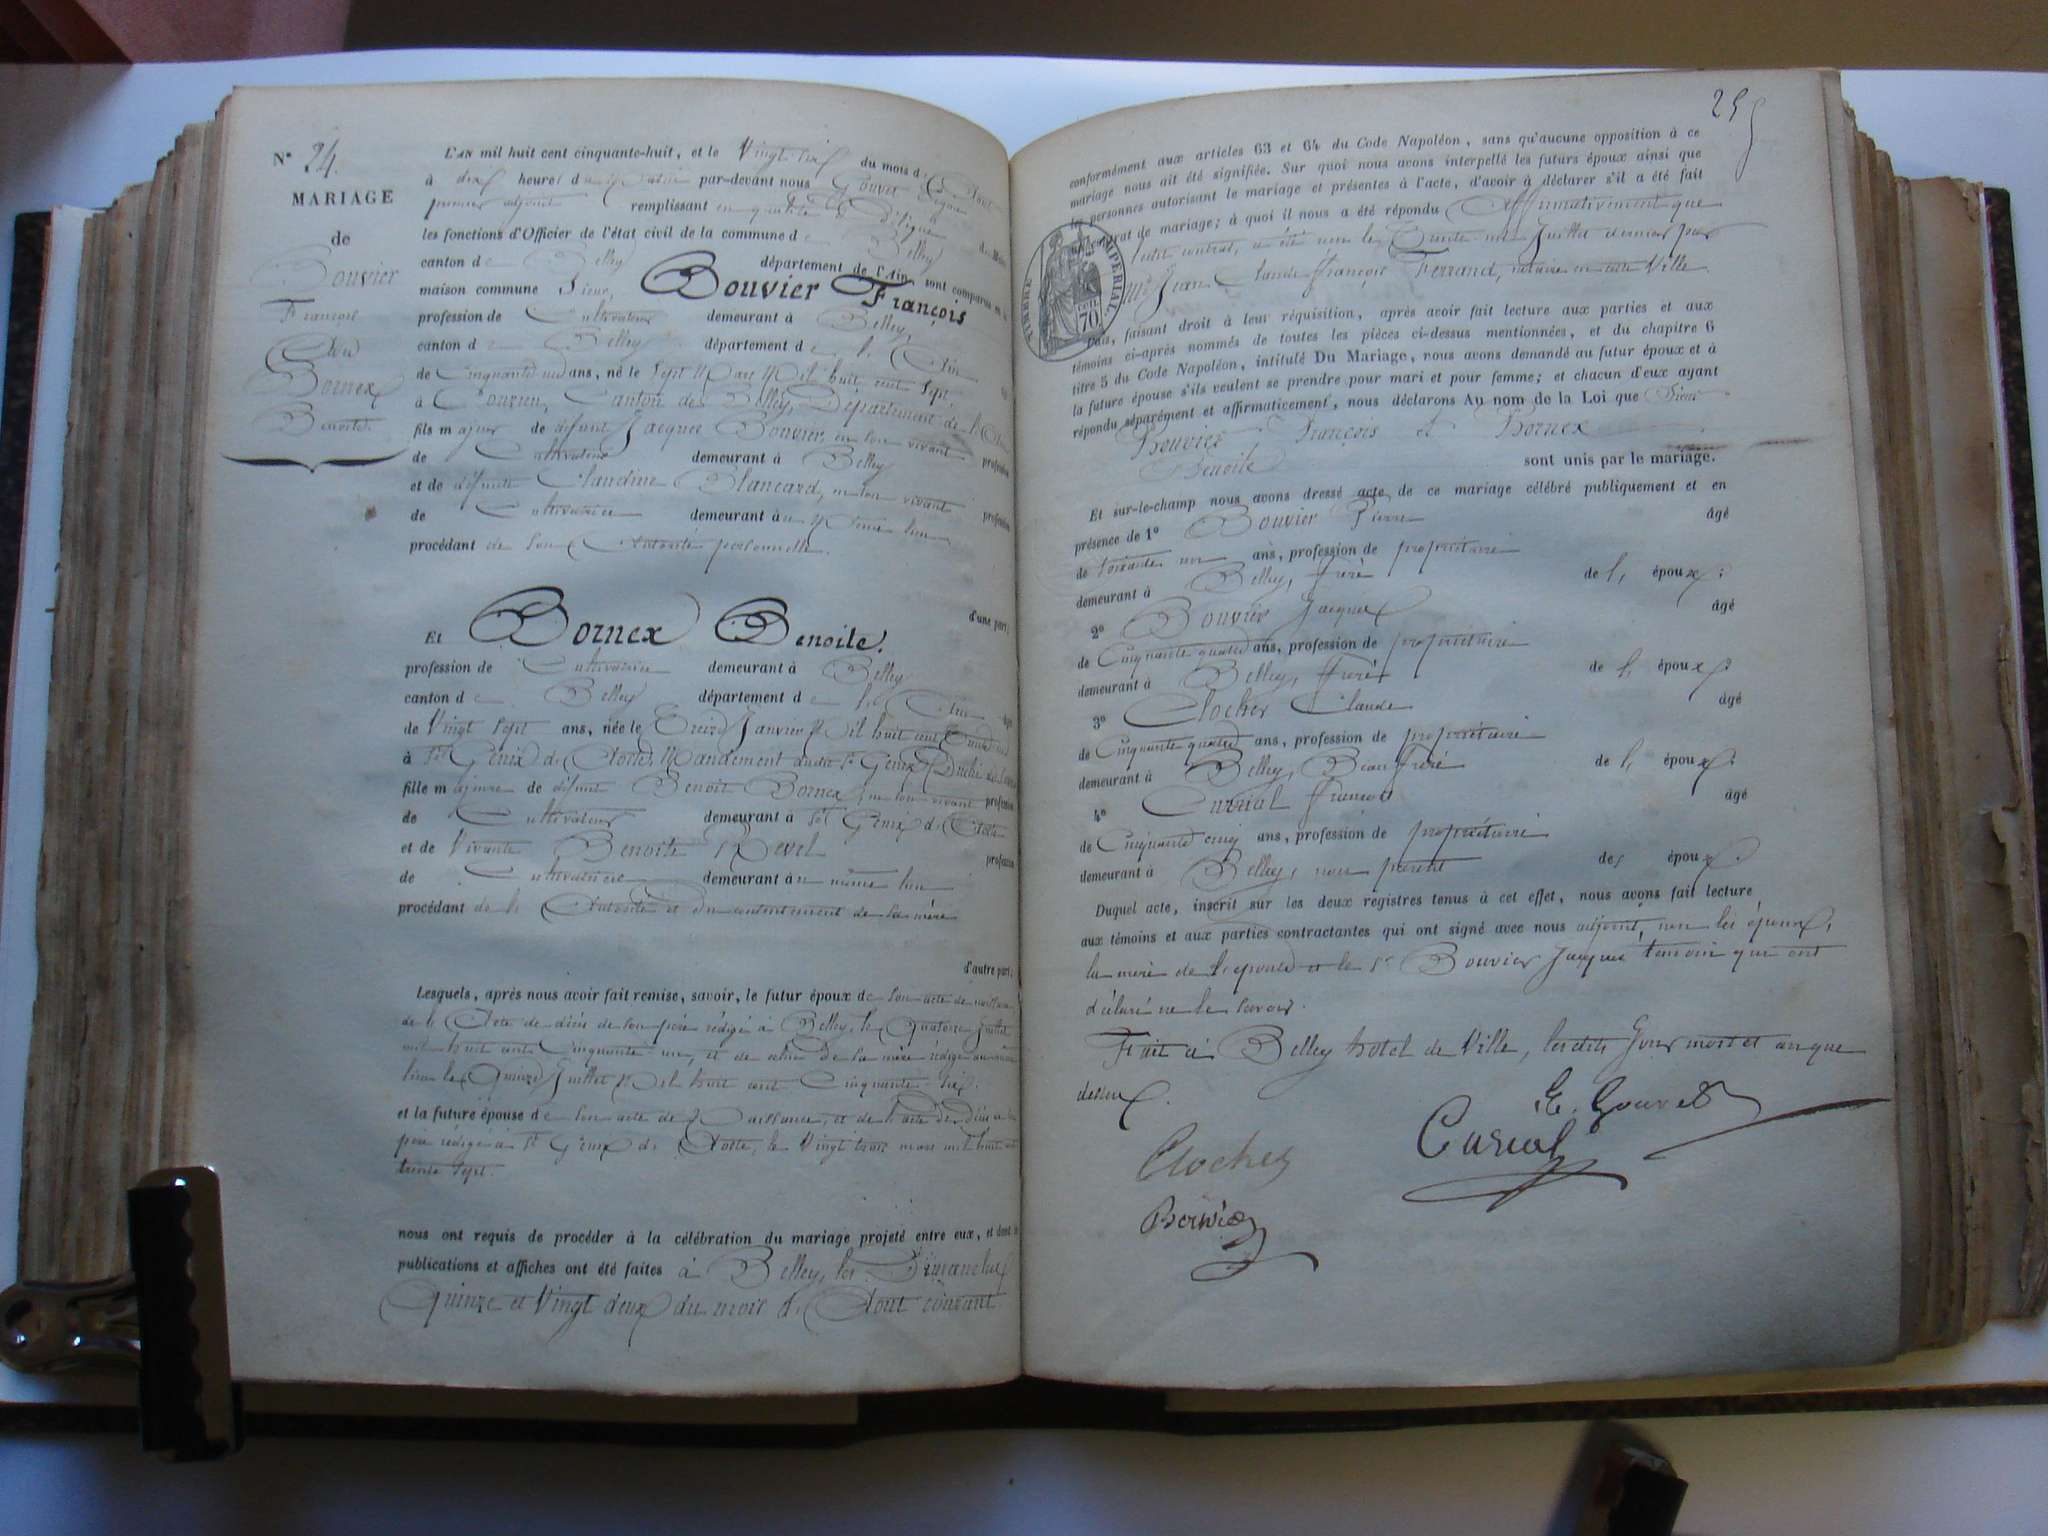 N° 24.
MARIAGE
de
Bouvier
François
Bornex
Benoite.
L'AN mil huit cent cinquante-huit, et le Vingt six du mois d'Aout
à dix heures du Matin par-devant nous Gouvet
premier adjoint remplissant en qualité de Délégué
les fonctions d'Officier de l'état civil de la commune de Belley
canton de Belley département de l'Ain, sont comparus en la
maison commune Sieur, Bouvier François
profession de Cultivateur demeurant à Belley,
canton de Belley département de l'Ain
de Cinquante un ans, né le Sept Mars Mil huit cent sept
à Canton de Belley, Département de l'Ain
fils majeur de défunt Jacques Bouvier, en son vivant profession
de Cultivateur demeurant à Belley
et de défunte Claudine Blancard, en son vivant profession
de Cultivatrice demeurant au Même lieu
procédant de son Autorité personnelle.
d'une part;
Et Bornex Benoite.
profession de Cultivatrice demeurant à Belley
canton de Belley département de l'Ain âgée
de Vingt sept ans, née le Treize Janvier Mil huit cent Trente un
à St Genix d'Aoste, Mandement dudit St Genix, Duché de Savoie
fille majeure de défunt Benoit Bornex, en son vivant profession
de Cultivateur demeurant à St Genix d'Aoste
et de Vivante Benoite Revel profession
de Cultivatrice demeurant au même lieu
procédant de l'Autorité et du consentement de sa mère
d'autre part;
Lesquels, après nous avoir fait remise, savoir, le futur époux de son acte de naissance
de l'Acte de décès de son père rédigé à Belley, le Quatorze Juillet
mil huit cent Cinquante un, et de celui de sa mère rédigé au même
lieu le Quinze Juillet Mil huit cent Cinquante six.
et la future épouse de son acte de Naissance, et de l'acte de Décès de son
père rédigé à St Genix d'Aoste, le Vingt trois mars mil huit cent
trente sept.
nous ont requis de procéder à la célébration du mariage projeté entre eux, et dont les
publications et affiches ont été faites à Belley, les Dimanches
Quinze et Vingt deux du mois d'Aout courant
25
conformément aux articles 63 et 64 du Code Napoléon, sans qu'aucune opposition à ce
mariage nous ait été signifiée. Sur quoi nous avons interpellé les futurs époux ainsi que
les personnes autorisant le mariage et présentes à l'acte, d'avoir à déclarer s'il a été fait
un contrat de mariage; à quoi il nous a été répondu Affirmativement que
ledit contrat, a été reçu le Trente un Juillet dernier par
Me Jean Claude François Ferrand, notaire en cette Ville
TIMBRE IMPERIAL
70
Puis, faisant droit à leur réquisition, après avoir fait lecture aux parties et aux
témoins ci-après nommés de toutes les pièces ci-dessus mentionnées, et du chapitre 6
titre 5 du Code Napoléon, intitulé Du Mariage, nous avons demandé au futur époux et à
la future épouse s'ils veulent se prendre pour mari et pour femme; et chacun d'eux ayant
répondu séparément et affirmativement, nous déclarons Au nom de la Loi que Sieur
Bouvier, François et Bornex
Benoite sont unis par le mariage.
Et sur-le-champ nous avons dressé acte de ce mariage célébré publiquement et en
présence de 1° Bouvier Pierre âgé
de soixante un ans, profession de propriétaire
demeurant à Belley, frère de l'époux;
2° Bouvier Jacques âgé
de Cinquante quatre ans, profession de propriétaire
demeurant à Belley, frère de l'époux;
3° Clocher Claude âgé
de Cinquante quatre ans, profession de propriétaire
demeurant à Belley, Beau frère de l'époux;
4° Curial François âgé
de Cinquante cinq ans, profession de propriétaire
demeurant à Belley, non parent des époux.
Duquel acte, inscrit sur les deux registres tenus à cet effet, nous avons fait lecture
aux témoins et aux parties contractantes qui ont signé avec nous adjoint, non les époux,
la mère de l'épouse et le Sr Bouvier Jacques temoin qui ont
déclaré ne le savoir.
Fait à Belley hotel de Ville, lesdits Jour mois et an que
dessus.
Gouvet
Curial
Clocher
Bouvier